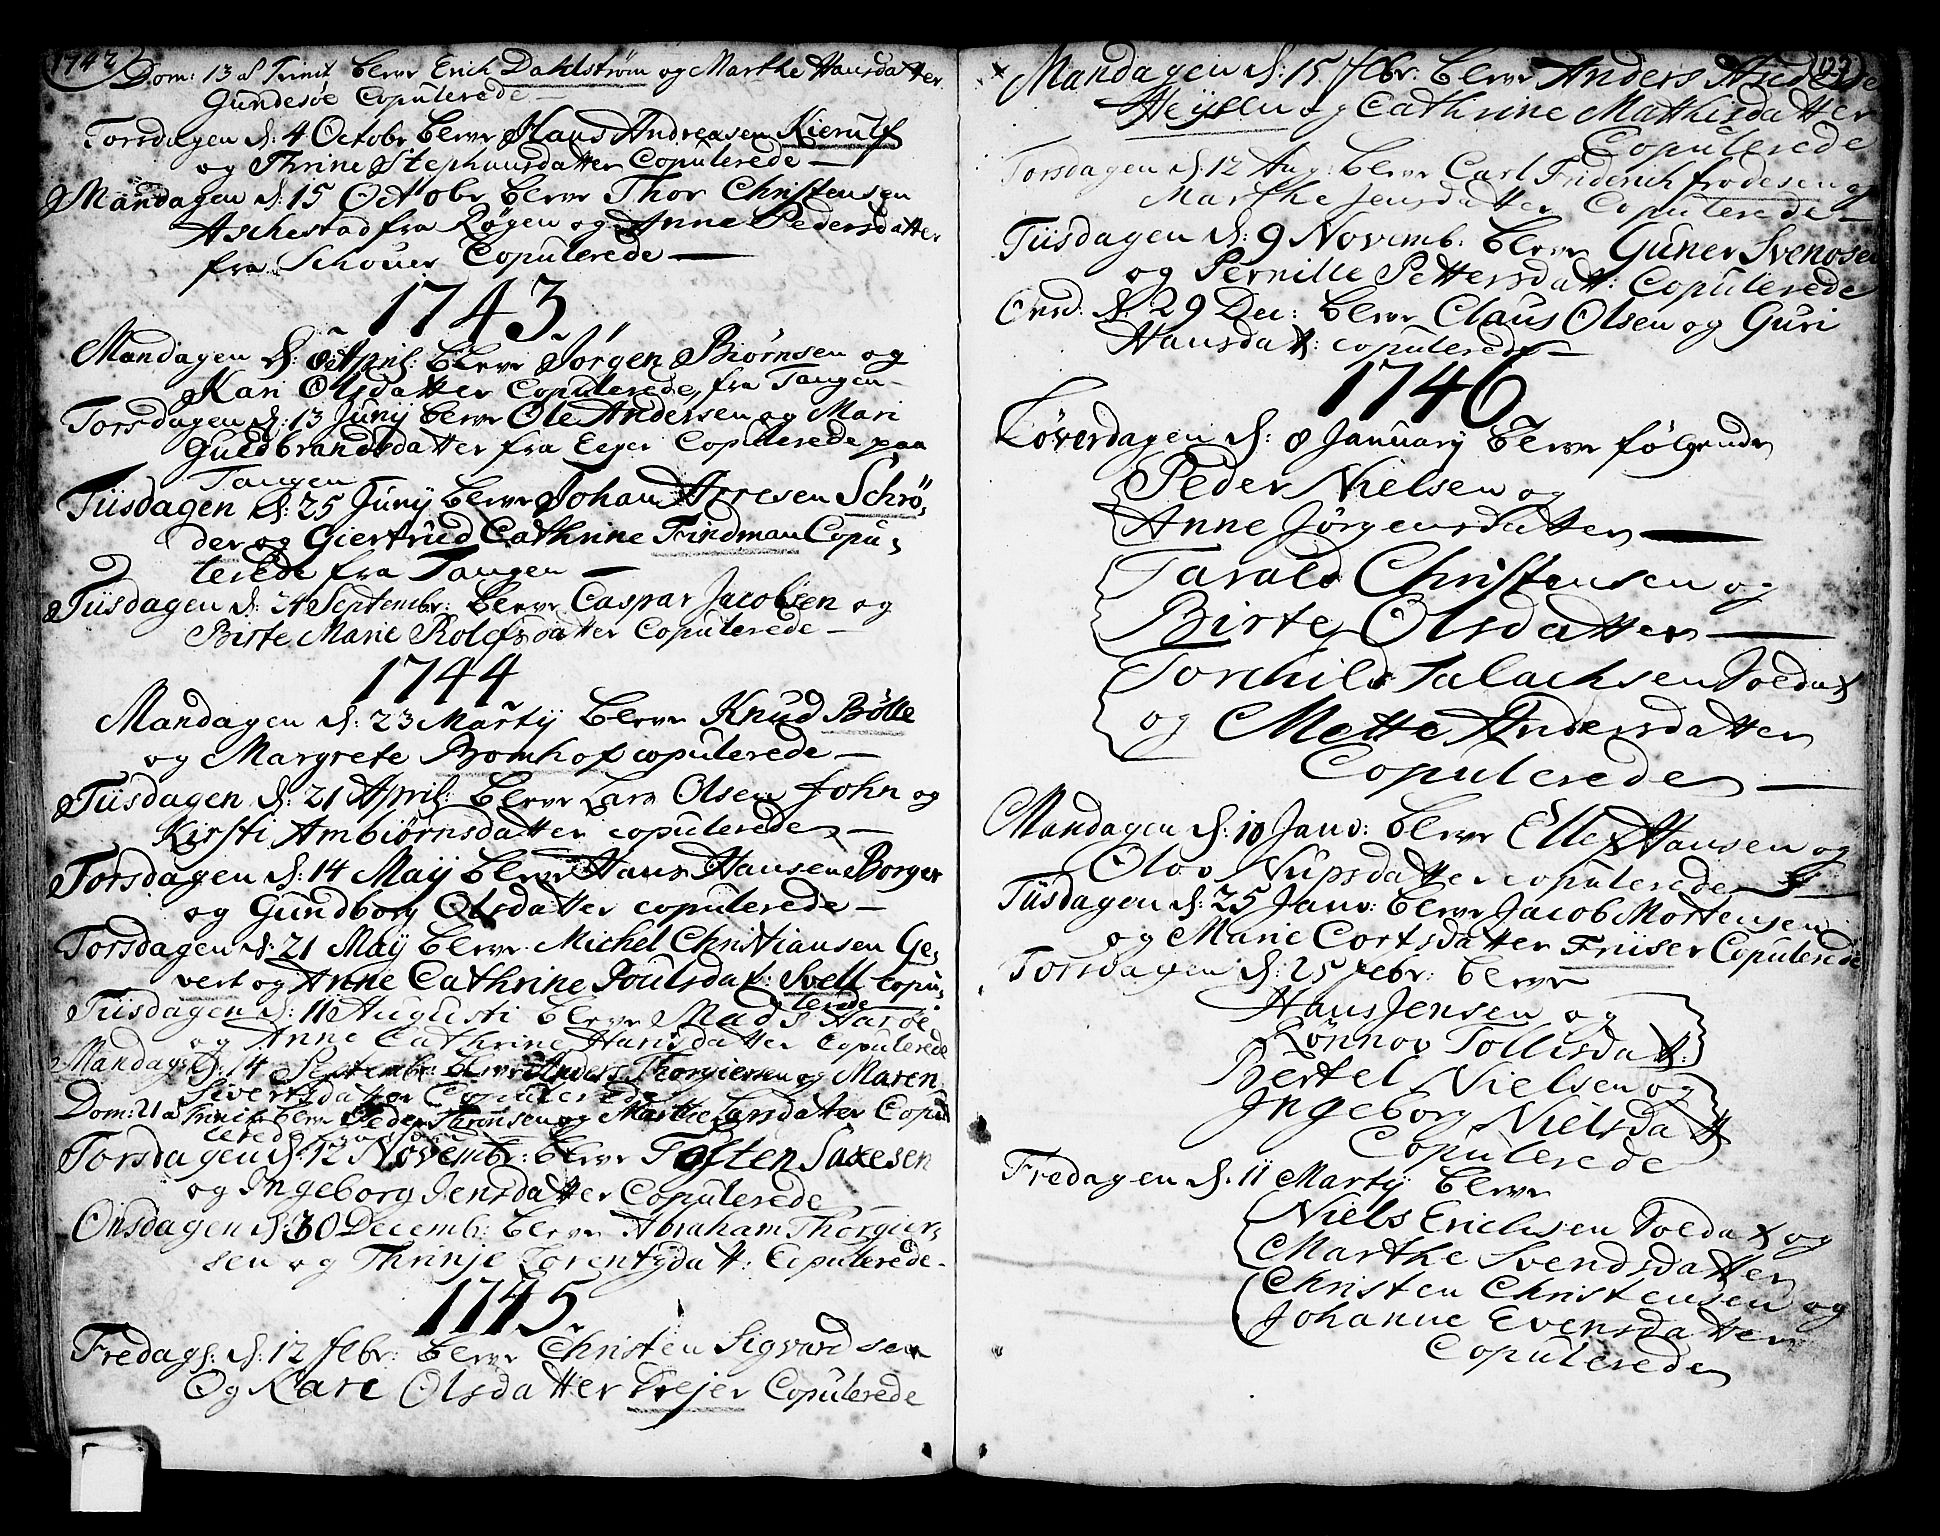 1742
Dom: 13 af Trinit blev Erich Dahlstrøm og Marthe Hansdatter
Gundesøe Copulerede
Torsdagen d: 4 Octobr blev Hans Andreasen Kierulf
og Thrine Stephansdatter Copulerede
Mandagen d: 15 Octobr blev Thor Christensen
Aschestad fra Røgen og Anne Pedersdatter
fra Schouer Copulerede
1743.
Mandagen d: 8 April: blev Jørgen Biørnsen og
Kari Olsdatter Copulerede, fra Tangen
Torsdagen d: 13 Juny blev Ole Andersen og Mari
Guldbrandsdatter fra Eger Copulerede paa
Tangen
Tiisdagen d: 25 Juny blev Johan Arresen Schrø,
der og Giertrud Cathrine Findman Copu,
lerede fra Tangen
Tiisdagen d: 24 Septembr: blev Caspar Jacobsen og
Birte Marie Rolofsdatter Copulerede
1744
Mandagen d: 23 Marty blev Knud Bølle
og Margrete Bomhof copulerede
Tiisdagen d: 21 April: blev Lars Olsen John og
Kirsti Ambiørnsdatter copulerede
Torsdagen d: 14 May blev Hans Hansen Borger
og Gundborg Olsdatter copulerede
Torsdagen d: 21 May blev Michel Christiansen Ge,
vert og Anne Cathrine Poulsdat: Svell Copu,
lerede
Tiisdagen d: 11 Augusti blev Mads Harøe
og Anne Cathrine Hansdatter Copulerede
Mandags d: 14 Septembr: blev Anders Thorgiersen og Maren
Sivertsdatter Copulerede
Dom: 21 a Trinit: blev Peder Thronsen og Marthe Larsdatter Copu
lerede
Torsdagen d: 12 Novembr: blev Tosten Saxesen
og Ingeborg Jensdatter Copulerede
Onsdagen d: 30 Decemb: blev Abraham Thorgier,
sen og Thrinje Lorentzdatt: Copulerede
1745.
Fredags: d: 12 febr: blev Christen Sigvardsen
Og Kare Olsdatter Krejer Copulerede
Mandagen d: 15 febr: blev Anders
Heysen og Cathrine Mathisdatter
Copulerede
Torsdagen d: 12 Aug: blev Carl Friderich frodesen og
Marthe Jensdatter Copulerede
Tiisdagen d: 9 Novemb: blev Guner Svendsen
og Pernille Pettersdatt: Copulerede
Onsd. d: 29 Dec: blev Claus Olsen og Guri
Hansdatt: copulerede
1746
Løverdagen d: 8 January blev følgende
Peder Nielsen og
Anne Jørgensdatter
Tarald Christensen og
Birte Olsdatter
Torchild Salachsen Soldat
og Mette Andersdatter
Copulerede
Mandagen d: 10 Janv: blev Ellef Hansen og
Olov Nupsdatter copulerede
Tiisdagen d: 25 Janv: blev Jacob Mortensen
og Marie Cortsdatter Friiser Copulerede
Torsdagen d: 25 febr: blev
Hans Jensen og
Rønnov Tollisdatt:
Bertel Nielsen og
Ingeborg Nielsdatt
Copulerede
Fredagen d: 11 Marty blev
Niels Erichsen Soldat og
Marthe Svendsdatter
Christen Christensen og
Johanne Evensdatter
Copulerede